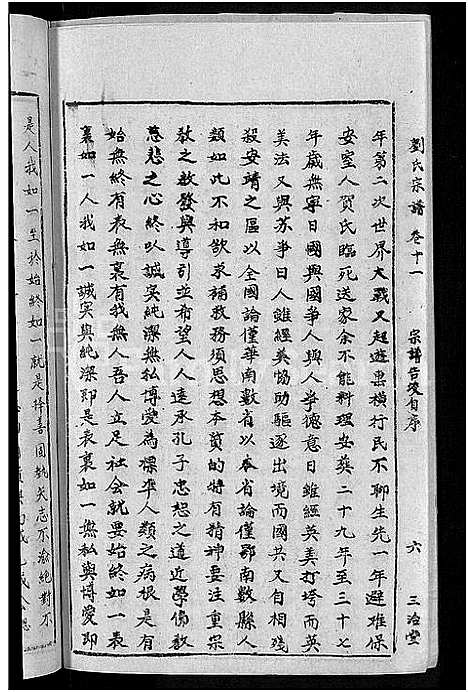 劉氏宗譜 卷十一 宗譜告竣自序 六 三治堂
年第二次世界大戰又起遊票橫行民不聊生先一年避難保
安室人賀氏臨死送家余不能料理安葬二十九年至三十七
年歲無寧日國與國爭人與人爭德意日雖經英美打垮而英
美法又與苏爭日人雖經美協助驅逐出境而國共又自相殘
殺安靖之區以全國論僅華南數省以本省論僅鄂南數縣人
類如不和欲求補救務須思想本質的有精神要注重宗
教之啟發與導引並希望人人遠承孔子忠恕之道近學佛教
慈悲之心終以誠实純潔無私博愛為標準人類之病根是有
始無終有表無裏有我無人吾人立足社会就要始終如一表
裏如一人我如一誠实與純潔即是表裏如一無私與博愛即
是人我如一至於始終如一就是擇善固執矢志不渝絕對不